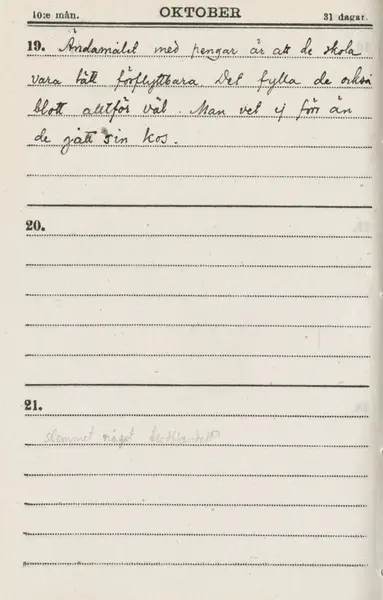 10:e mån. OKTOBER 31 dagar.
19. Ändamålet med pengar är att de skola
vara lätt förflyttbara. Det fylla de också
blott alltför väl. Man vet ej förr än
de gått sin kos.
20.
21.
något